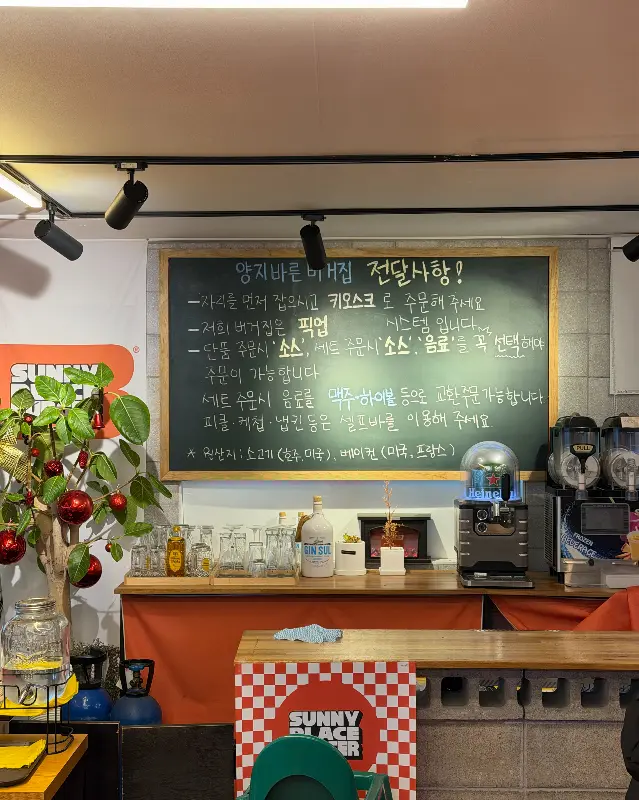 양지바른 버거집 전달사항!
- 자리를 먼저 잡으시고 키오스크로 주문해 주세요
- 저희 버거집은 픽업 시스템 입니다
- 단품 주문시 '소스', 세트 주문시 '소스', '음료'를 꼭 선택해야
주문이 가능합니다
세트 주문시 음료를 맥주·하이볼 등으로 교환주문가능합니다.
피클·케첩·냅킨 등은 셀프바를 이용해 주세요.
* 원산지 : 소고기 (호주, 미국), 베이컨 (미국, 프랑스)
SUNNY
PLACE
PULL
Heineken
GIN SUL
FROZEN
BEVERAGE
SUNNY
PLACE